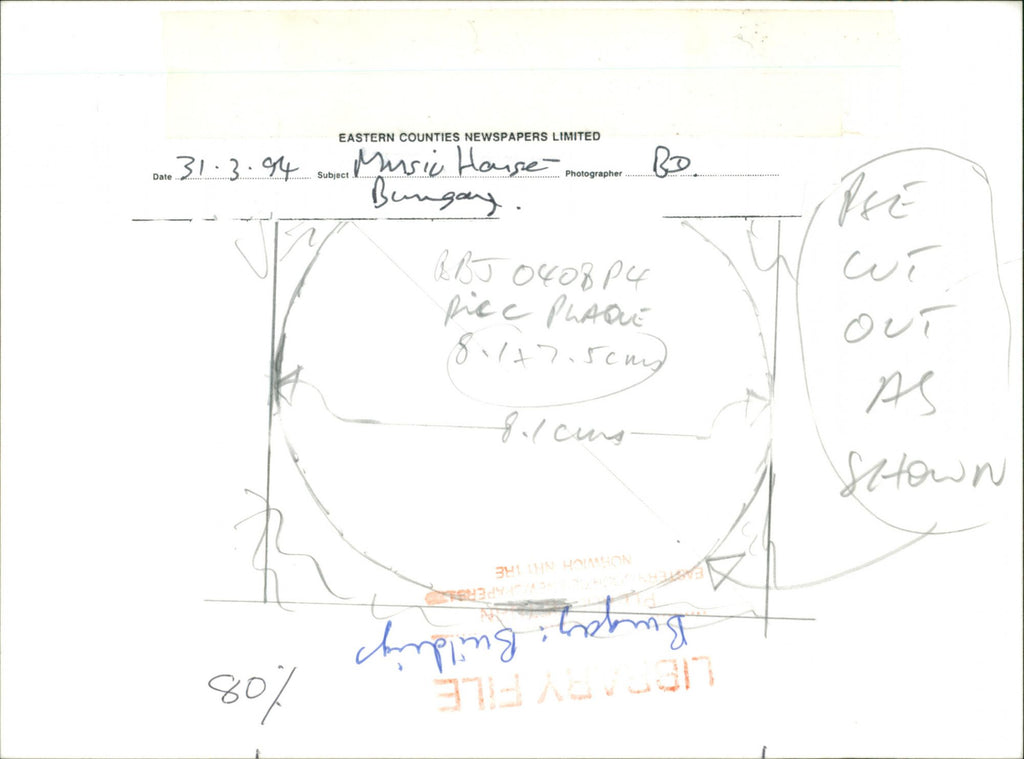 EASTERN COUNTIES NEWSPAPERS LIMITED
Date 31.3.94 Subject Music House Photographer BD.
Bungay.
PSE
CUT
OUT
AS
SHOWN
BBJ 0408P4
PICC PLAQUE
8.1 x 7.5 cms
8.1 cms
NORWICH NR1 1RE
EASTERN COUNTIES NEWSPAPERS
Bungay: Buildings
LIBRARY FILE
80%